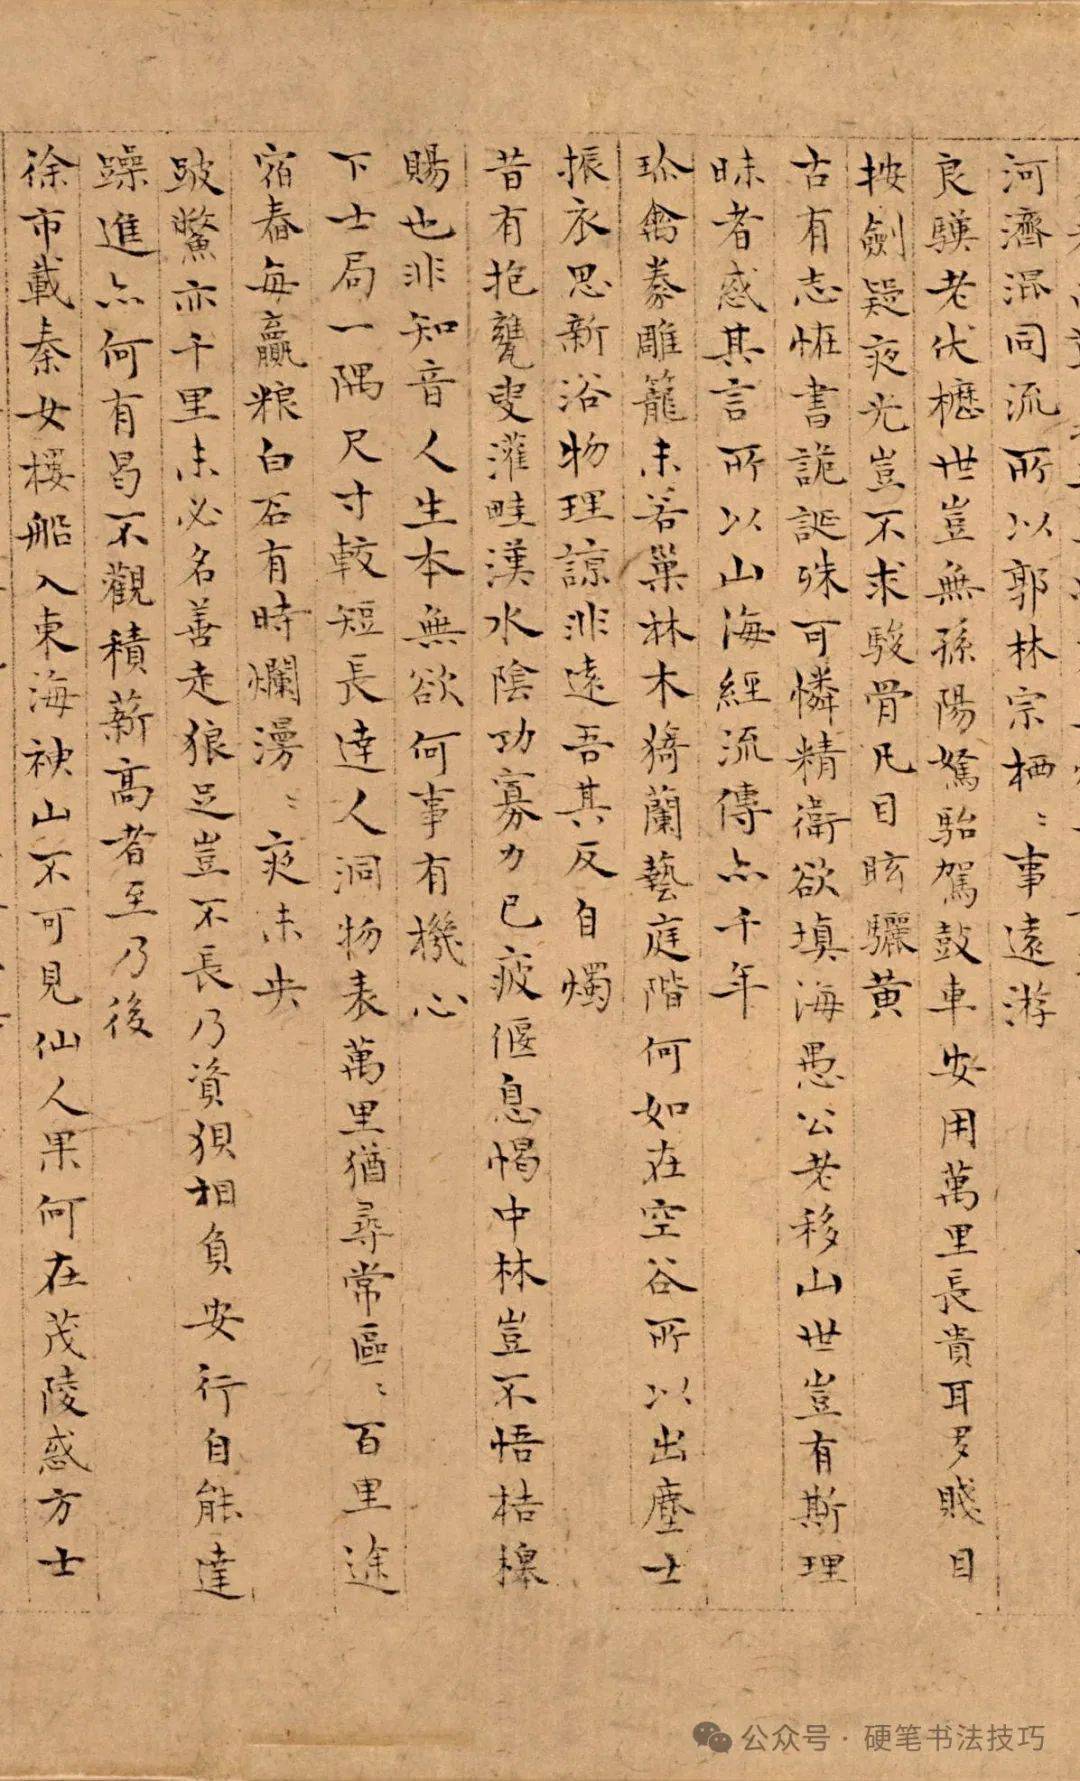 河濟混同流所以郭林宗栖〻事遠游
良驥老伏櫪世豈無孫陽駑駘駕鼓車安用萬里長貴耳多賤目
按劍疑夜光豈不求駿骨凡目眩驪黃
古有志恠書詭誕殊可憐精衛欲填海愚公老移山世豈有斯理
昧者惑其言所以山海經流傳亦千年
珎禽豢雕籠未若巢林木猗蘭藝庭階何如在空谷所以出塵士
振衣思新浴物理諒非遠吾其反自燭
昔有抱甕叟灌畦漢水陰功寡力已疲偃息愒中林豈不悟桔槔
賜也非知音人生本無欲何事有機心
下士局一隅尺寸較短長達人洞物表萬里猶尋常區〻百里途
宿舂每贏粮白石有時爛漫〻夜未央
跛鱉亦千里未必名善走狼足豈不長乃資狽相負安行自能達
躁進亦何有曷不觀積薪高者至乃後
徐市載秦女樓船入東海神山不可見仙人果何在茂陵惑方士
公众号·硬笔书法技巧